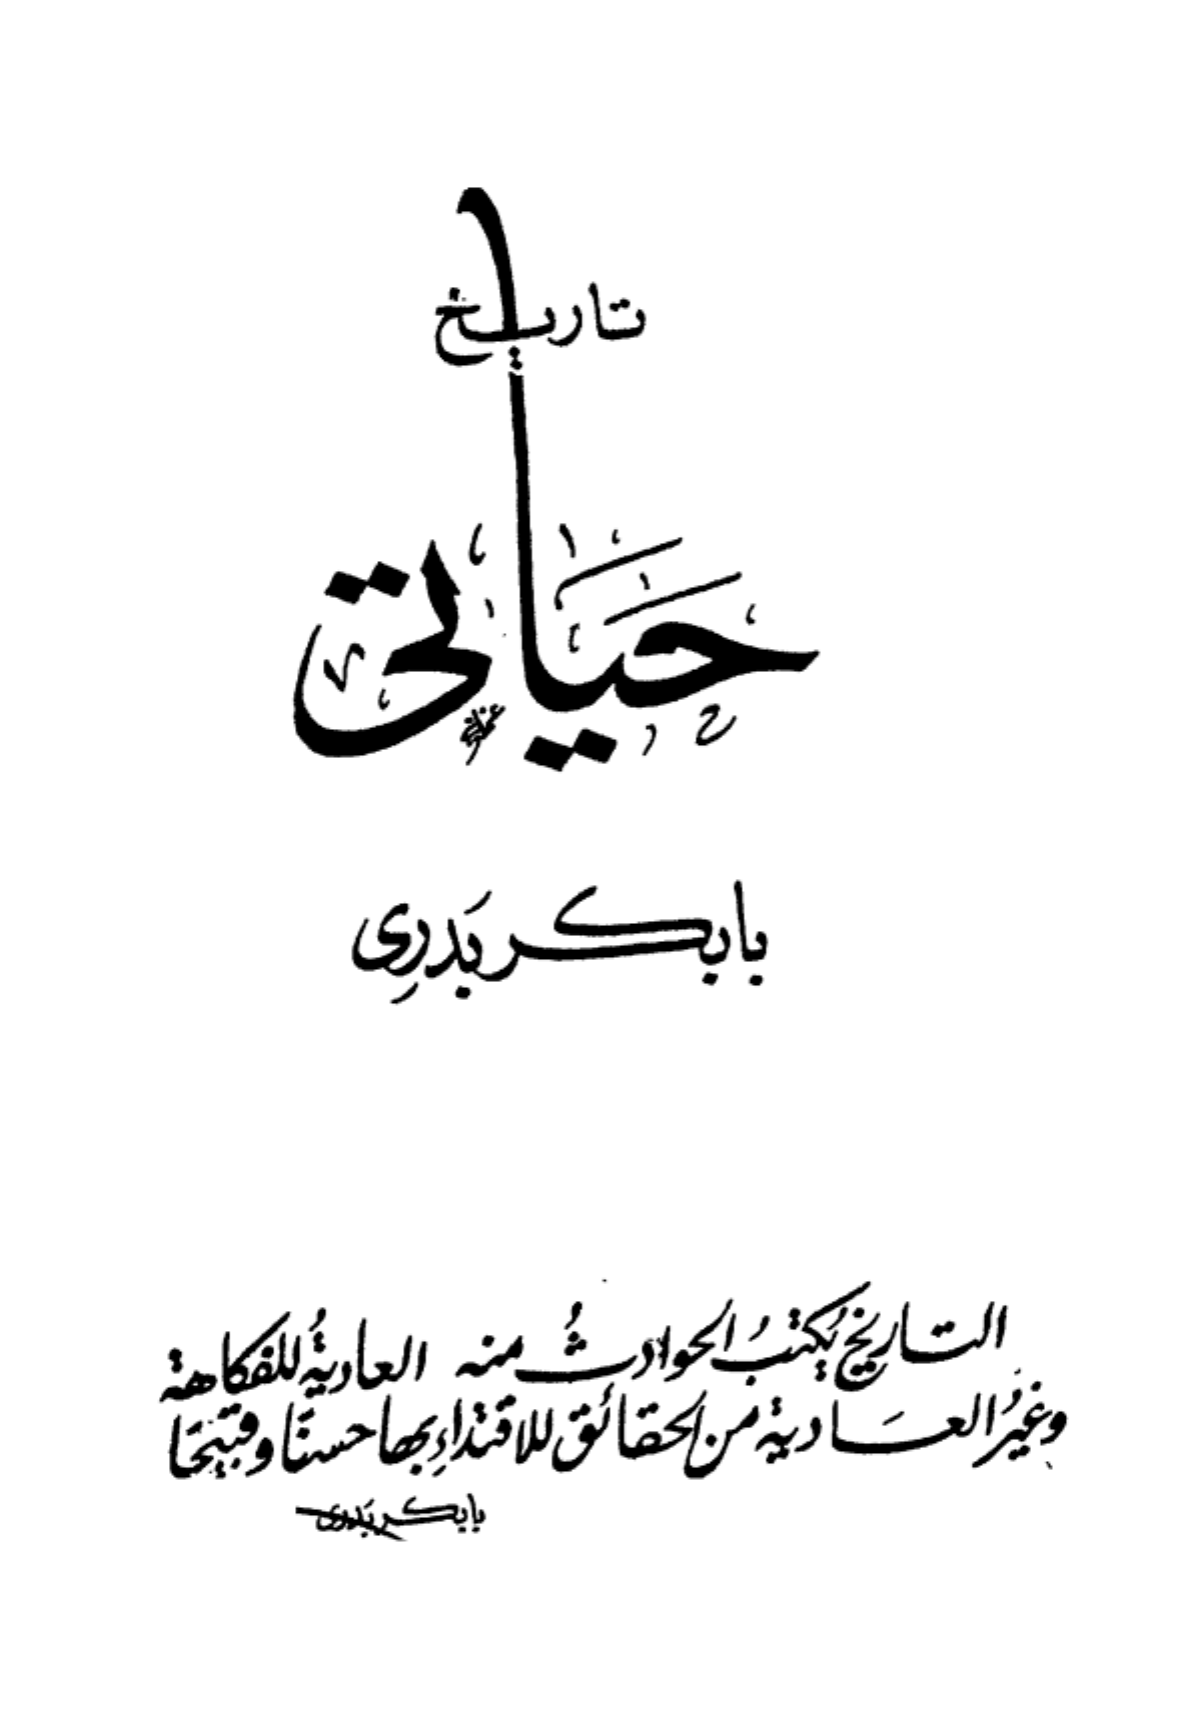 تاريخ
حياتى
بابكر بَدرِى
التاريخ يُكتبُ الحوادثُ منه العاديةُ للفكاهة
وغيرُ العَادية من الحقائق للاقتداءِ بها حسنًا وقبيحًا
بابكر بَدرى